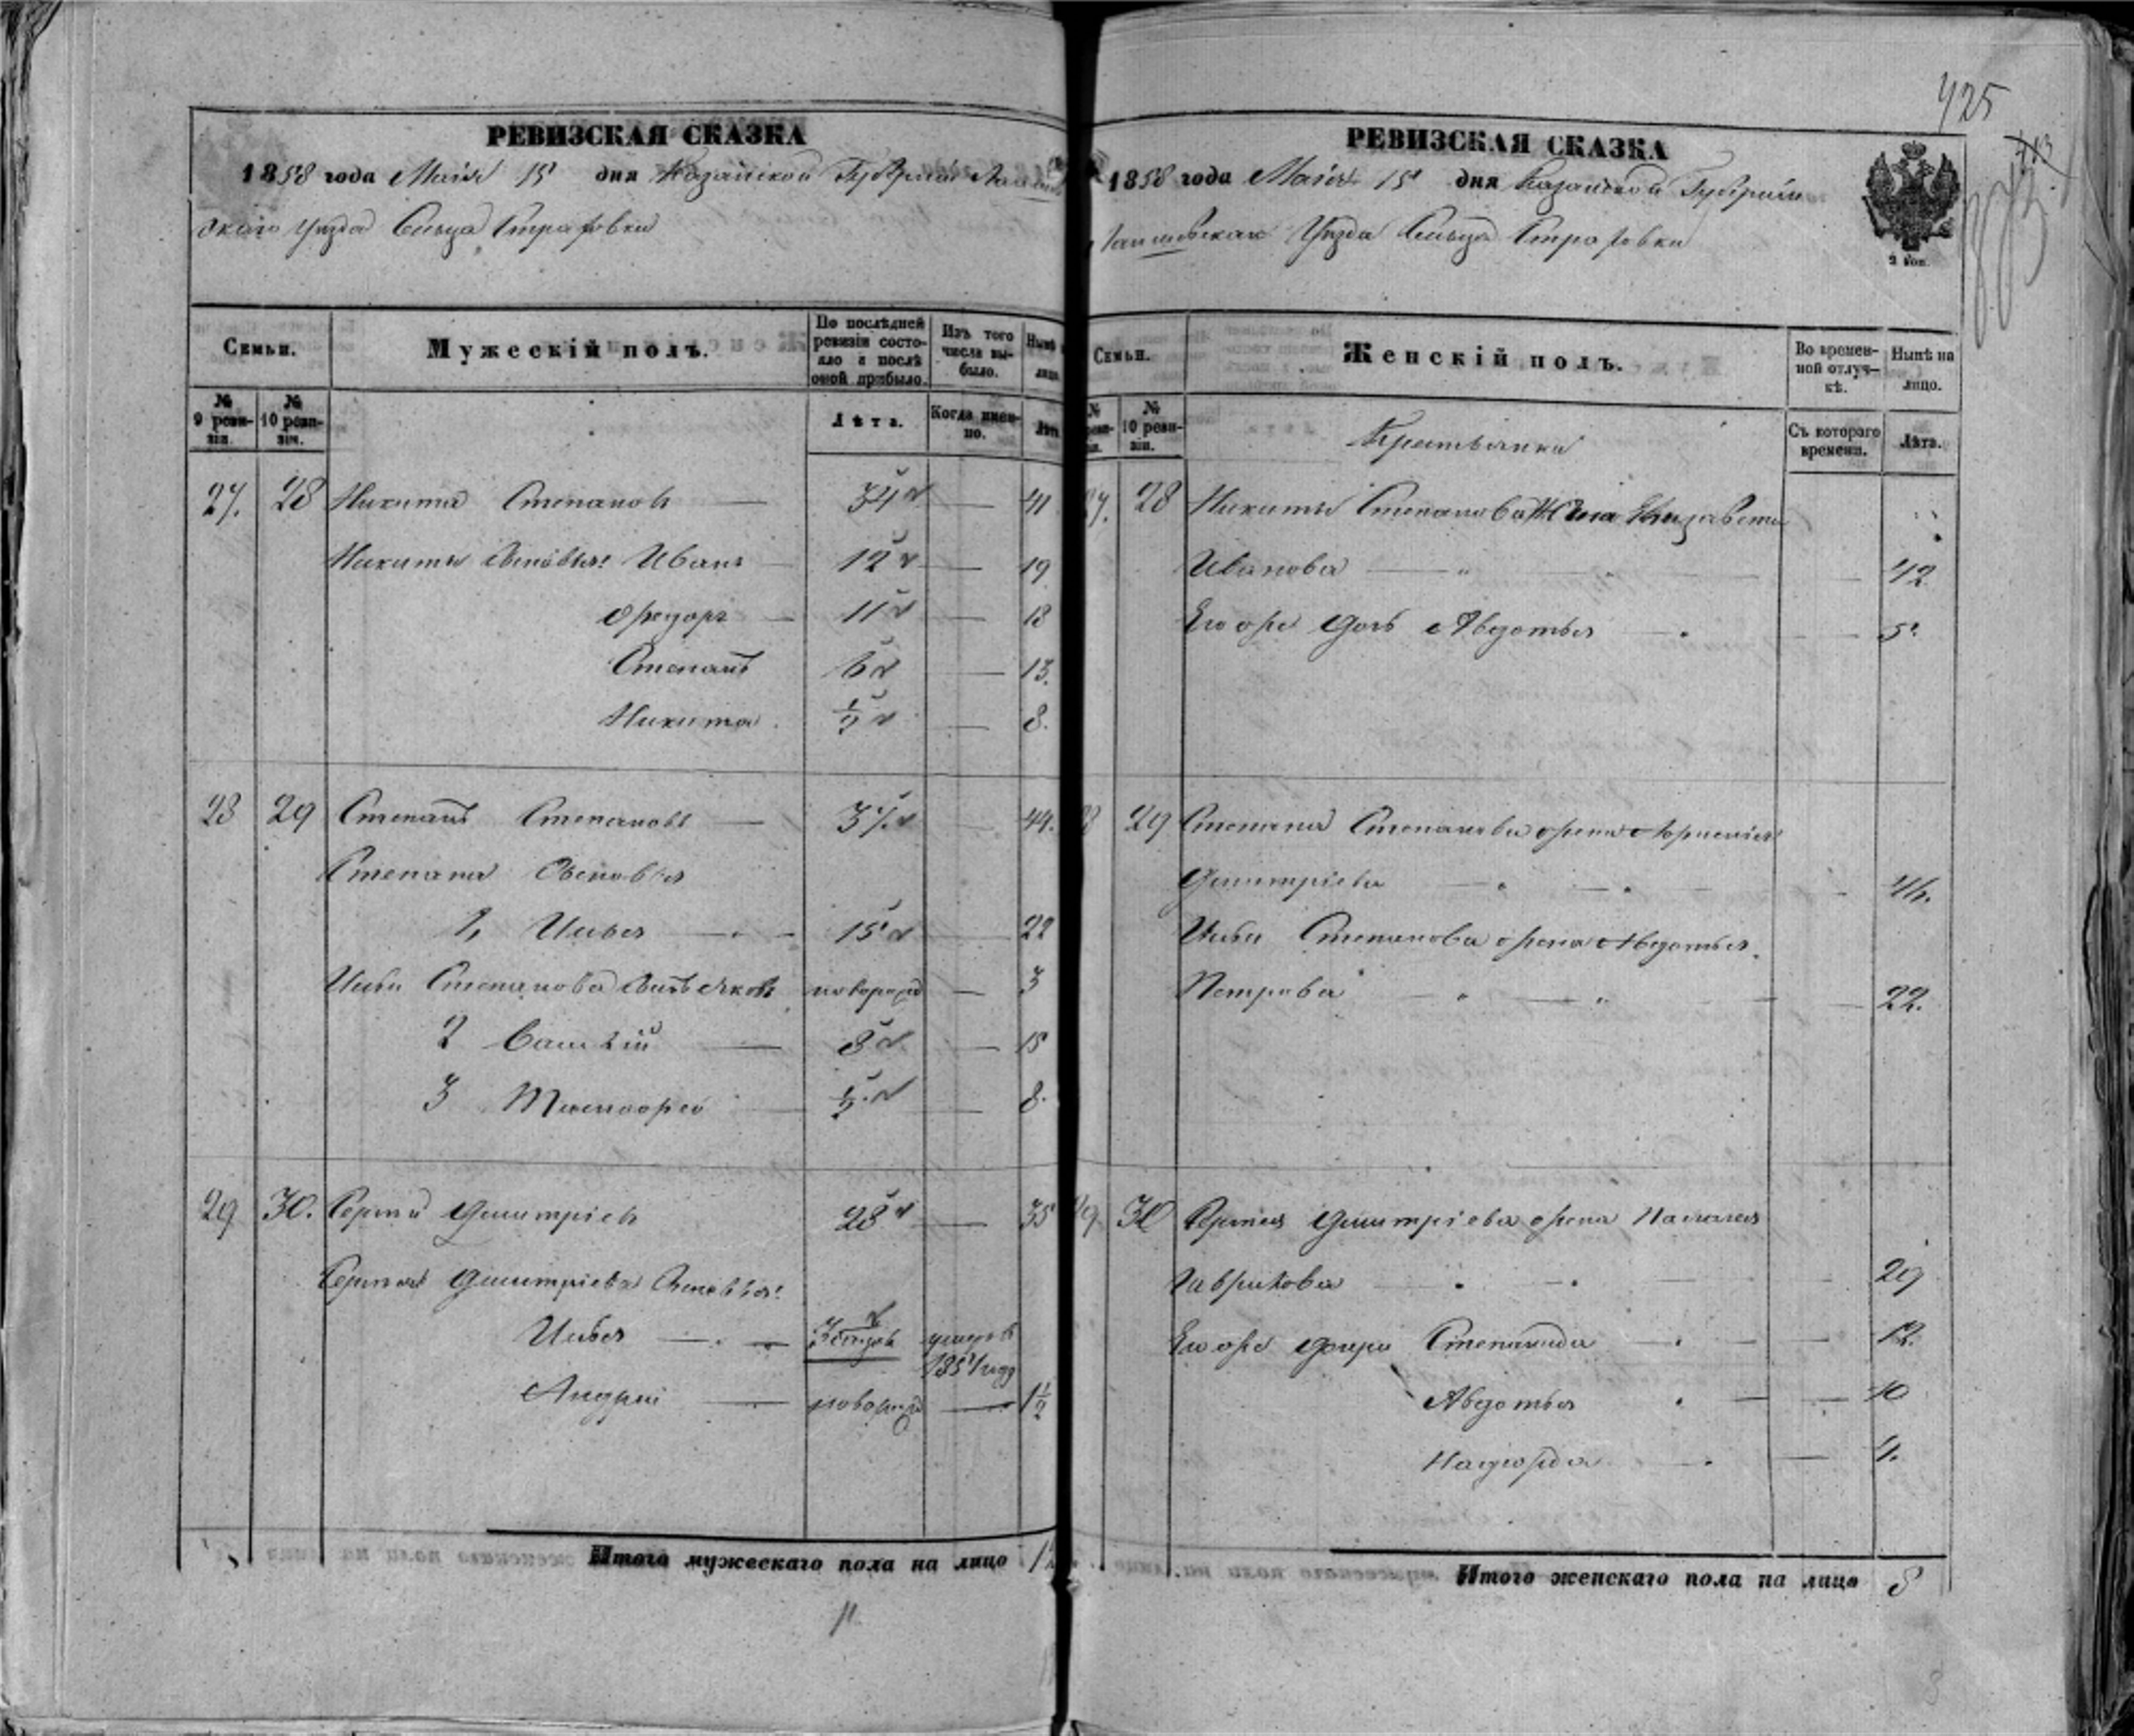 425
РЕВИЗСКАЯ СКАЗКА
1858 года Маія 15 дня Казанской Губерніи Лаишев
скаго Уезда Сельца Страховки
Семьи.
Мужескій полъ.
По послѣдней ревизіи состояло и послѣ оной прибыло.
Изъ того числа выбыло.
Нынѣ на лицо.
№ 9 ревизіи.
№ 10 ревизіи.
Лѣта.
Когда именно.
Лѣта
27. 28 Никита Степановъ — 34 — 41
Никиты Сыновья: Иванъ — 12 — 19
Ѳедоръ — 11 — 18
Степанъ 6 — 13.
Никита 1/2 — 8.
28 29 Степанъ Степановъ — 37 44.
Степана Сыновья
1, Илья — 15 22
Ильи Степанова Сынъ Яковъ новорожд — 3
2 Василій — 8 — 15
3 Тимофей — 1/2 — 8.
29 30. Сергей Дмитріевъ 28 — 35
Сергея Дмитріева Сыновья:
Илья — умеръ в
1851 году
Андрей — новорожд — 1 1/2
Итого мужескаго пола на лицо
РЕВИЗСКАЯ СКАЗКА
1858 года Маія 15 дня Казанской Губерніи
Лаишевскаго Уезда Сельца Страховки
Семьи.
Женскій полъ.
Во временной отлучкѣ.
Нынѣ на лицо.
№ 10 ревизіи.
Съ котораго времени.
Лѣта.
Крестьянки
27. 28 Никиты Степанова Жена Елизавета
Иванова — 42
Его же дочь Авдотья — 5.
28 29 Степана Степанова жена
Дмитріева — 44.
Ильи Степанова жена Авдотья
Петрова — 22.
29. 30 Сергея Дмитріева жена Палагея
Гаврилова — 29
Его же дочери Степанида — 12.
Авдотья — 10
Надежда — 4.
Итого женскаго пола на лицо 8